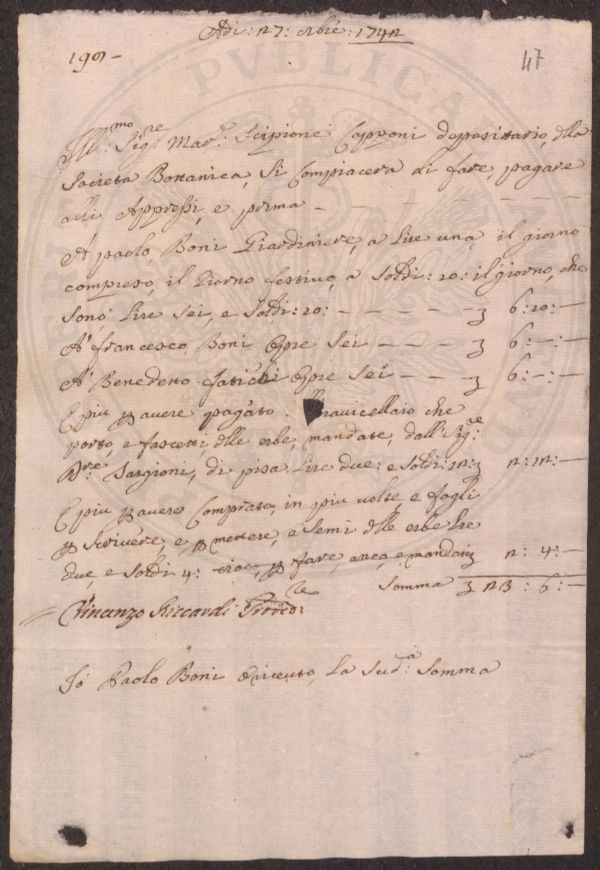 Adi: 27: 1742
190 -
47
Ill:mo Sig:re Mar:e Scipione Capponi depositario, dlla
Societa Bottanica, Si Compiacera di fare pagare
alli Appressi, e prima - - - - - - -
A paolo Boni Giardiniere, a lire una il giorno
compreso, il Giorno festivo, a Soldi: 10: il giorno, che
Sono Lire Sei, e Soldi: 10: - - - - - 6: 10: -
A francesco, Boni Opre Sei - - - 6: -: -
A Benedetto fatichi Opre Sei - - - 6: -: -
E piu p avere pagato Navicellaio che
porto, e fascetti, dlle erbe, mandate, dall Sig:re
D:re Targioni, di pisa lire due: e Soldi: 12: 2: 12: -
E piu p avere Comprato, in piu volte e fogli
p Scrivere, e p mettere, e Semi dlle erbe lire
due, e Soldi 4: p fare, e mandati 2: 4: -
Somma 23: 6: -
Vincenzo Riccardi Provv:re
Io Paolo Boni O riceuto, la Sud:a Somma
PVBLICA